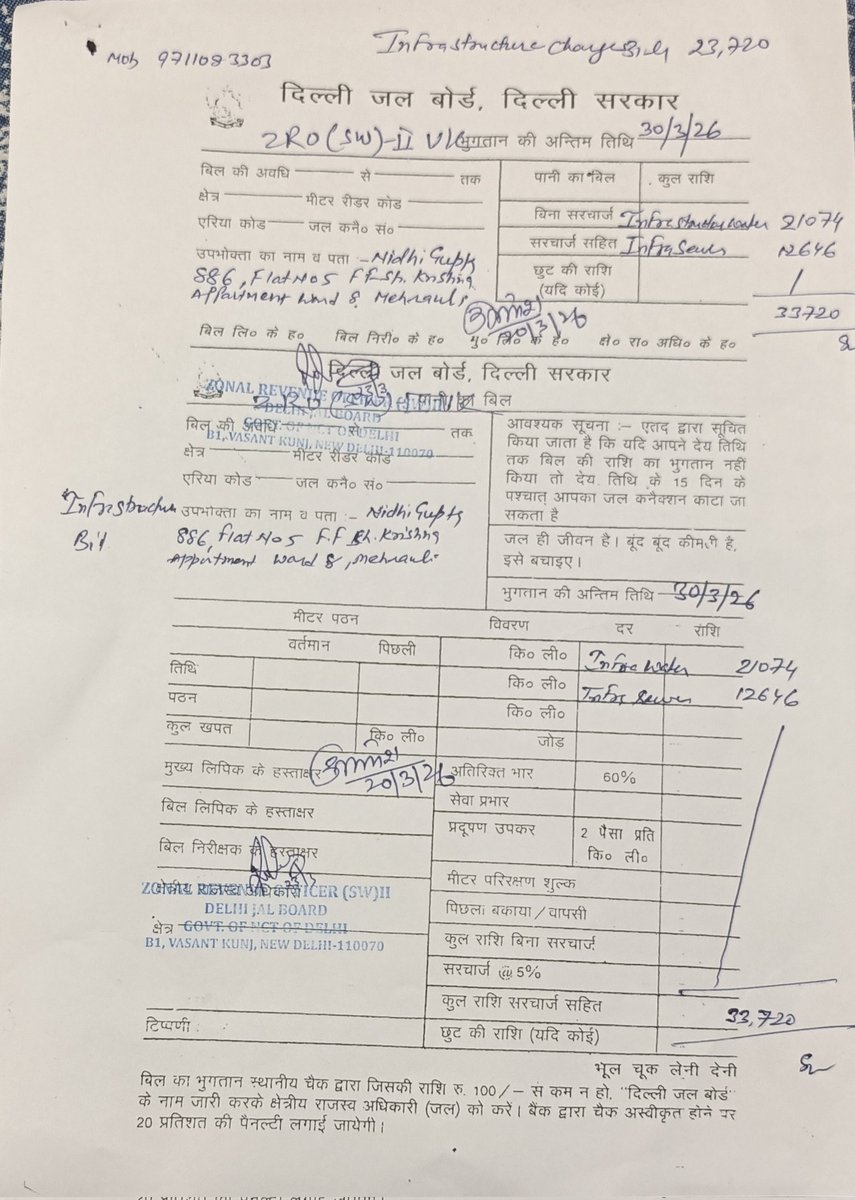 Infrastructure charges 23,720
Mob 9711083303
दिल्ली जल बोर्ड, दिल्ली सरकार
ZRO (SW)-II भुगतान की अन्तिम तिथि 30/3/26
बिल की अवधि से तक पानी का बिल कुल राशि
क्षेत्र मीटर रीडर कोड
बिना सरचार्ज Infrastructure water 21074
एरिया कोड जल कनै० सं०
सरचार्ज सहित Infra Sewer 12646
उपभोक्ता का नाम व पता :- Nidhi Gupta
886, Flat No 5 F.F Sh. Krishna
छुट की राशि
(यदि कोई)
Appartment Ward 8, Mehrauli
33720
20/3/26
बिल लि० के ह० बिल निरी० के ह० मु० लि० के ह० क्षे० रा० अधि० के ह०
दिल्ली जल बोर्ड, दिल्ली सरकार
ZONAL REVENUE
पानी का बिल
DELHI JAL BOARD
GOVT. OF NCT OF DELHI
B1, VASANT KUNJ, NEW DELHI-110070
बिल की अवधि से तक
क्षेत्र मीटर रीडर कोड
एरिया कोड जल कनै० सं०
आवश्यक सूचना :- एतद द्वारा सूचित
किया जाता है कि यदि आपने देय तिथि
तक बिल की राशि का भुगतान नहीं
किया तो देय. तिथि के 15 दिन के
पश्चात् आपका जल कनैक्शन काटा जा
सकता है
Infrastructure
Bill
उपभोक्ता का नाम व पता :- Nidhi Gupta
886, Flat No 5 F.F Sh. Krishna
Appartment Ward 8, Mehrauli
जल ही जीवन है। बूंद बूंद कीमती है,
इसे बचाइए।
भुगतान की अन्तिम तिथि 30/3/26
मीटर पठन विवरण दर राशि
वर्तमान पिछली कि० ली० Infra water 21074
तिथि कि० ली० Infra Sewer 12646
पठन कि० ली०
कुल खपत कि० ली० जोड
मुख्य लिपिक के हस्ताक्षर 20/3/26 अतिरिक्त भार 60%
बिल लिपिक के हस्ताक्षर सेवा प्रभार
बिल निरीक्षक के हस्ताक्षर प्रदूषण उपकर 2 पैसा प्रति
कि० ली०
मीटर परिरक्षण शुल्क
क्षेत्रीय राजस्व अधिकारी
ZONAL REVENUE OFFICER (SW)II
DELHI JAL BOARD
पिछला बकाया / वापसी
क्षेत्र
GOVT. OF NCT OF DELHI
B1, VASANT KUNJ, NEW DELHI-110070
कुल राशि बिना सरचार्ज
सरचार्ज @ 5%
कुल राशि सरचार्ज सहित 33,720
टिप्पणी : छुट की राशि (यदि कोई)
भूल चूक लेनी देनी
बिल का भुगतान स्थानीय चैक द्वारा जिसकी राशि रु. 100/- से कम न हो, "दिल्ली जल बोर्ड"
के नाम जारी करके क्षेत्रीय राजस्व अधिकारी (जल) को करें। बैंक द्वारा चैक अस्वीकृत होने पर
20 प्रतिशत की पैनल्टी लगाई जायेगी।